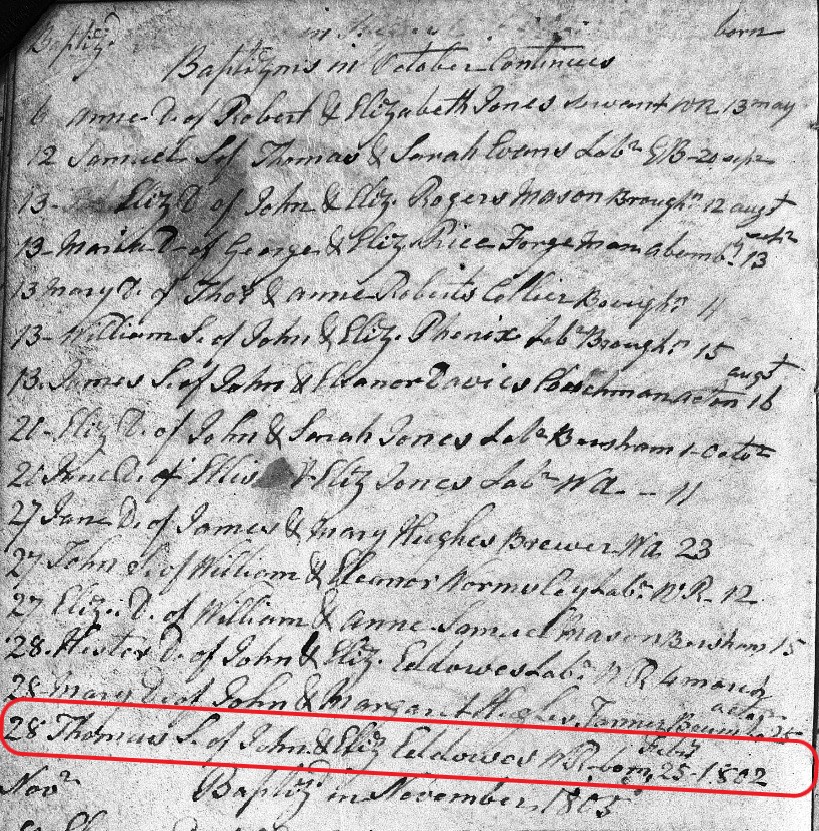 Baptiz.d born
Baptizms in October Continues
6 Anne D. of Robert & Elizabeth Jones Servant WR 13 may
12 Samuel S. of Thomas & Sarah Evans Labr EB 20 sepr
13 Eliz D of John & Eliz. Rogers Mason Brough.n 12 augst
13 Maria D. of George & Eliz. Rice Forge man abemb.y sepr 13
13 Mary D. of Thos & anne Roberts Collier Brough.n 11
13 William S. of John & Eliz. Phenix Labr Brough.n 15
13 James S. of John & Eleanor Davies Coachman acton augst 16
20 Eliz D. of John & Sarah Jones Labr Bersham 1 octor
20 Jane D. of Ellis & Eliz Jones Labr Wa 11
27 Jane D. of James & Mary Hughes Brewer Wa 23
27 John S. of William & Eleanor Wormsley Labr WR 12
27 Eliz. D. of William & anne Samuel mason Bersham 15
28 Hester D. of John & Eliz. Eddowes Labr WR 4 march
28 Mary D. of John & Margaret Hughes Tanner octor 25
28 Thomas S. of John & Eliz Eddowes WR born Feby 25 1802
Novr Baptizd in November 1805